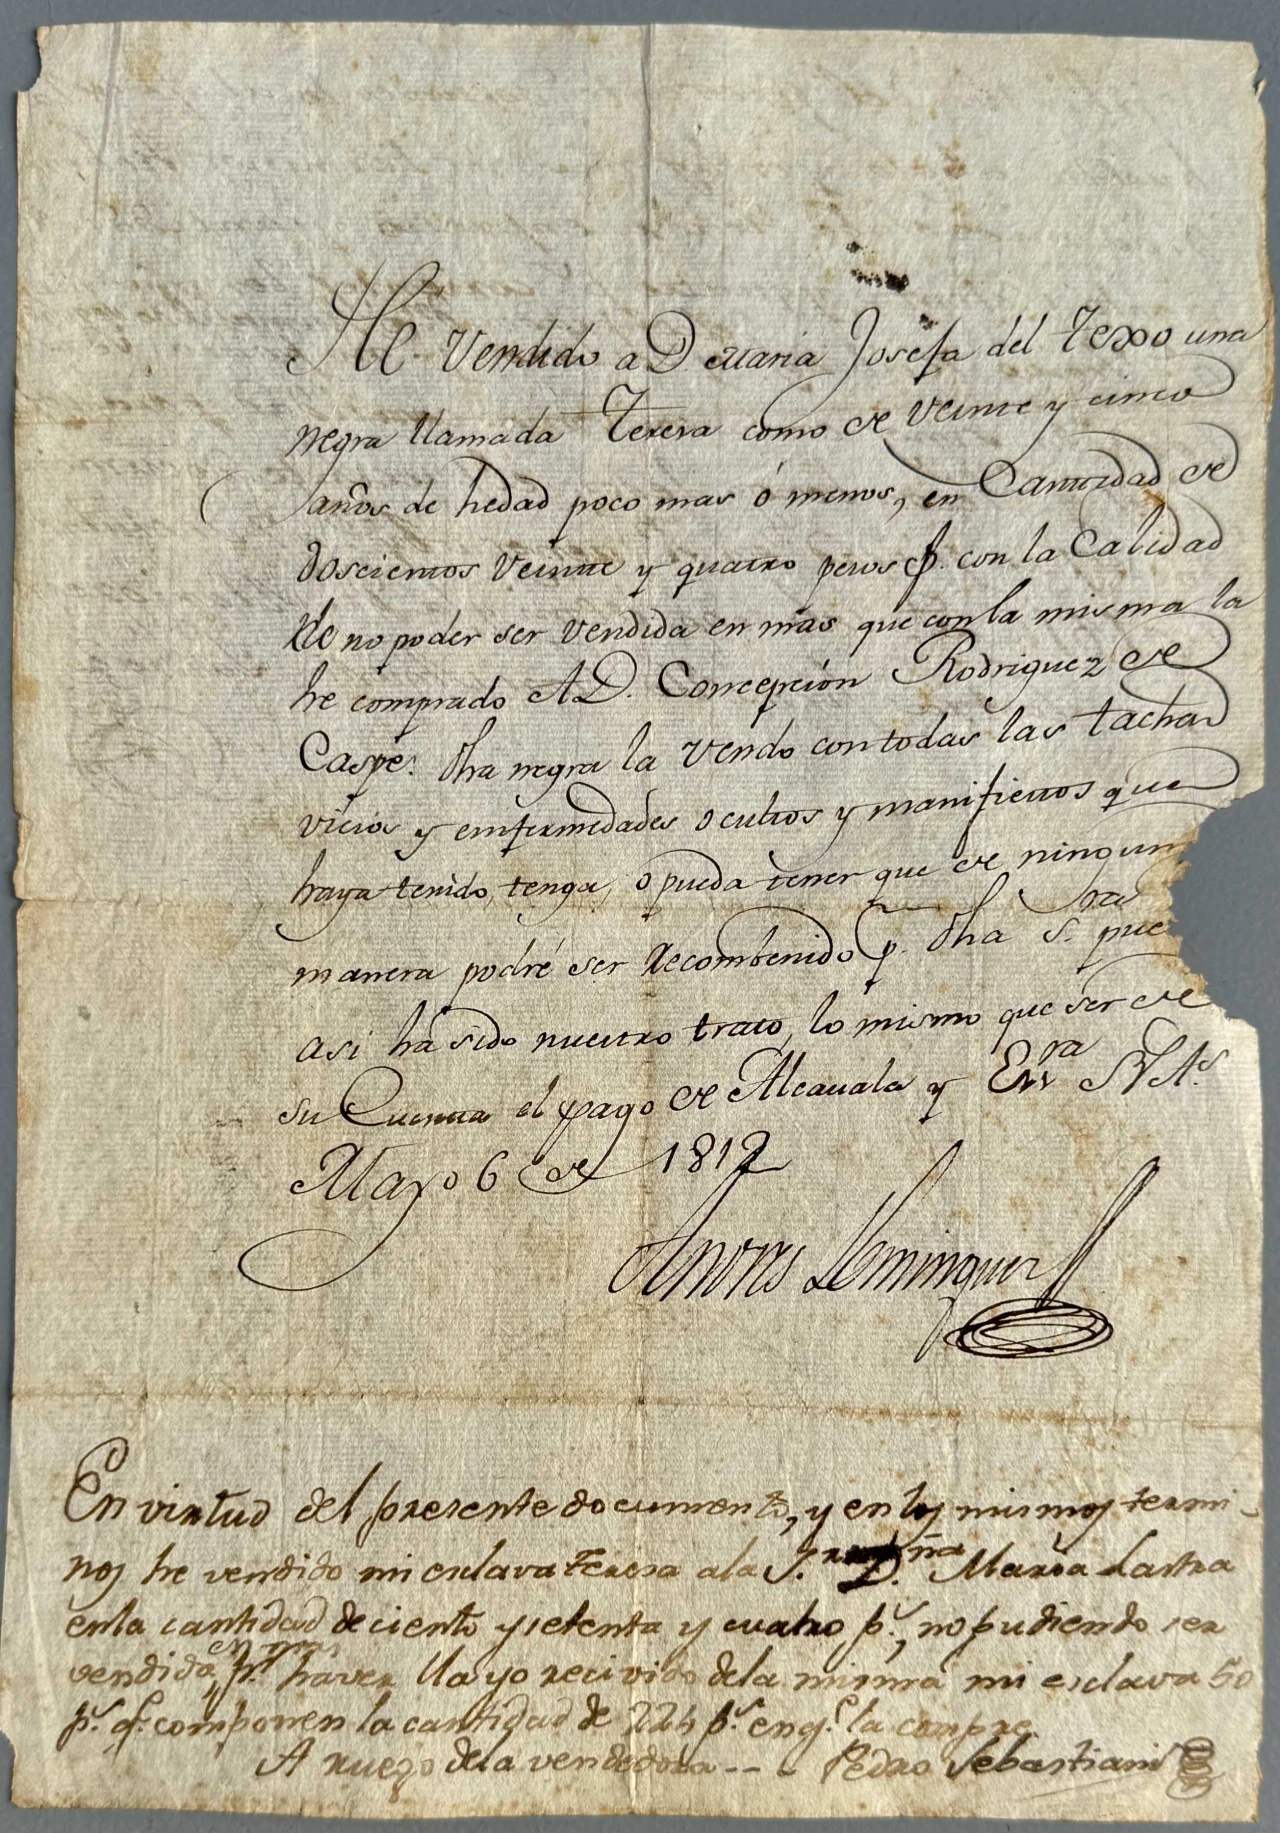 He Vendido a D. Maria Josefa del Texo una
negra llamada Teresa como de veinte y cinco
años de hedad poco mas ó menos, en Cantidad de
doscientos veinte y quatro pesos f. con la Calidad
de no poder ser vendida en mas que con la misma la
he comprado A D. Concepción Rodriguez de
Caspe: dha negra la vendo con todas las tachas
vicios y emfermedades ocultos y manifiestos que
haya tenido, tenga, o pueda tener que de ningun
manera podré ser Recombenido p. dha S.ra pue
asi ha sido nuestro trato, lo mismo que ser de
su Cuenta el pago de Alcavala y Esv.ra
Mayo 6 de 1812
Andres Dominguez
En virtud del presente documento, y en los mismos termi-
nos he vendido mi esclava Teresa a la S.ra D.ña Maria Lastra
en la cantidad de ciento y setenta y cuatro p.s, no pudiendo ser
vendida en mas p.r haver lla yo recivido de la misma mi esclava 50
p.s q.e componen la cantidad de 224 p.s en q.e la compre
A ruego de la vendedora -- - Pedro Sebastiani